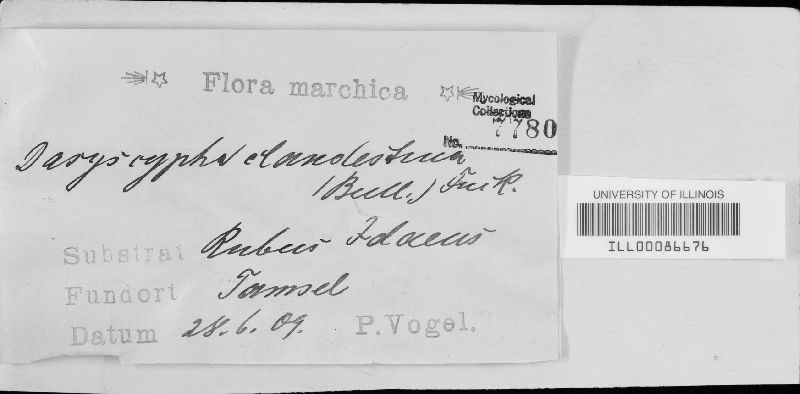 Flora marchica
Mycological
Collections
No. 7780
Dasyscypha clandestina
(Bull.) Fuck.
Substrat Rubus Idaeus
Fundort Tamsel
Datum 28.6.09. P. Vogel.
UNIVERSITY OF ILLINOIS
ILL00086676